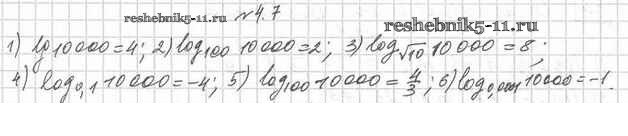 reshebnik5-11.ru №4.7
reshebnik5-11.ru
1) lg 10000 = 4; 2) log₁₀₀ 10000 = 2; 3) log_√10 10000 = 8;
4) log₀,₁ 10000 = -4; 5) log₁₀₀ 10000 = 4/3; 6) log₀,₀₀₀₁ 10000 = -1.